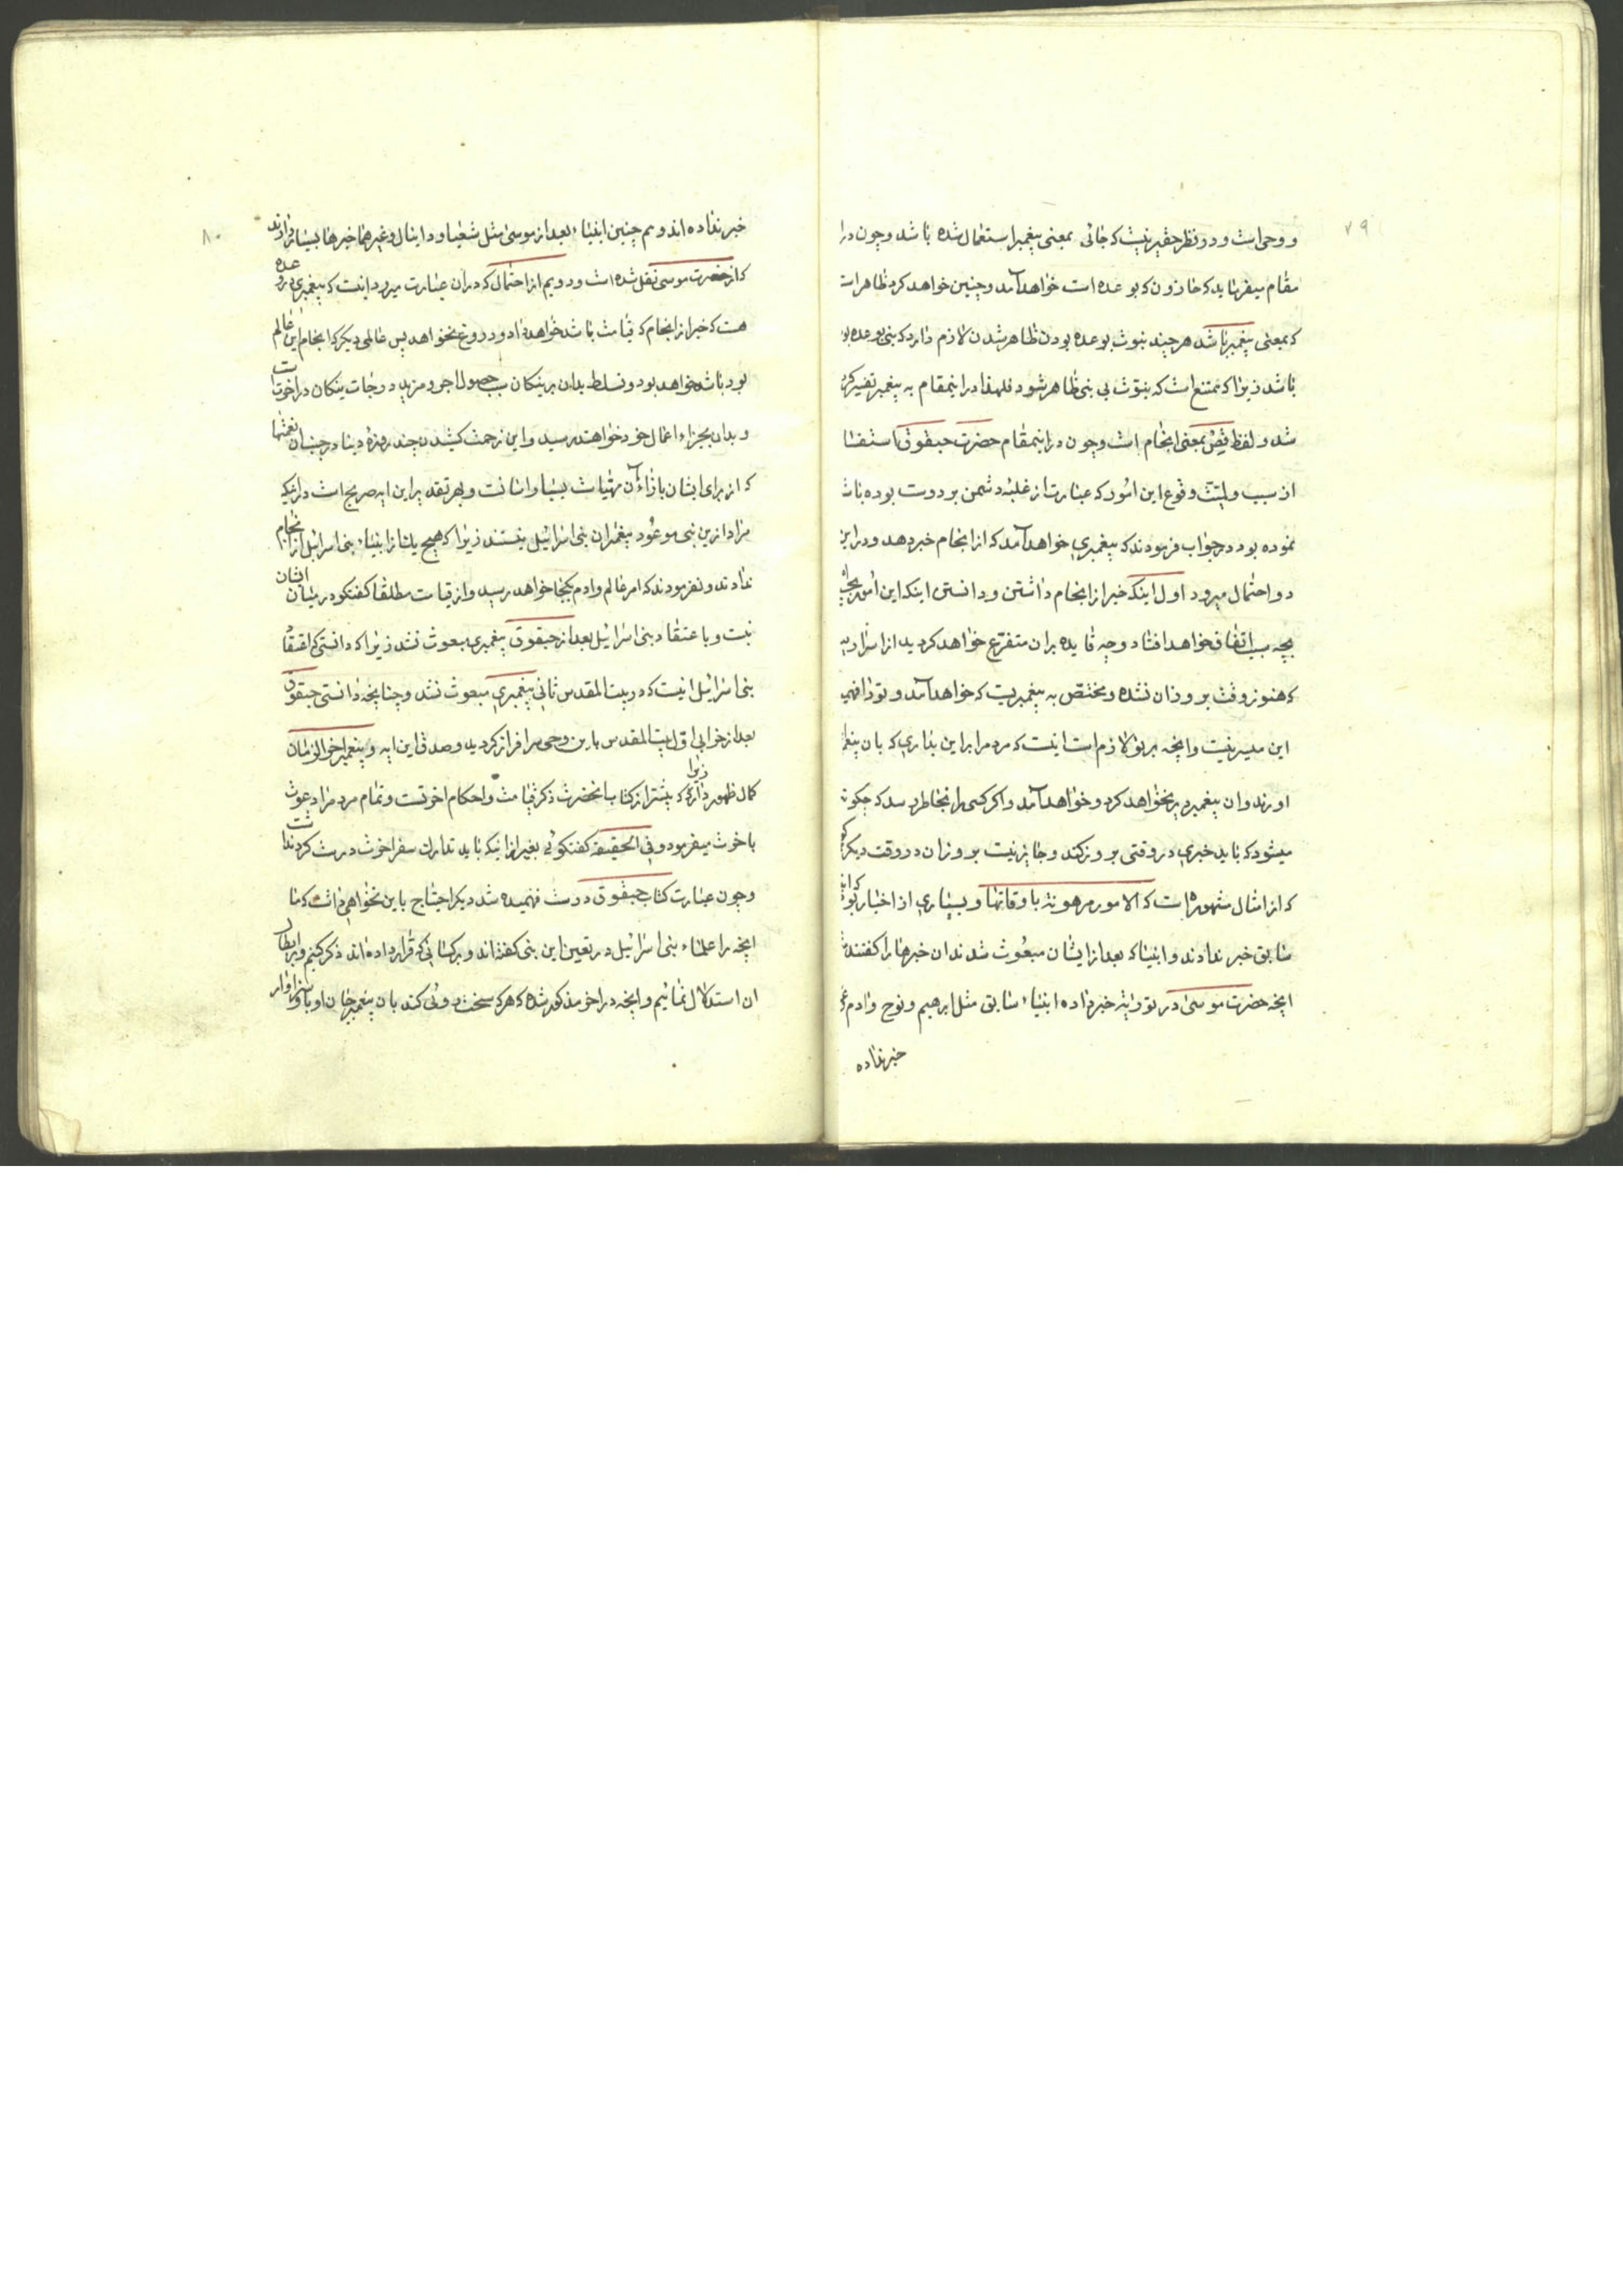 ۷۹
و وحی است و در نظر حقیر نیست که جائی بمعنی پیغمبر استعمال شده باشد و چون در
مقام میفرماید که خازون که بوعده است خواهد آمد و چنین خواهد کرد ظاهر است
که بمعنی پیغمبر باشد هر چند نبوت بوعده بودن ظاهر شدن لازم دارد که نبی بوعده بو
باشد زیرا که ممتنع است که نبوت بی نبی ظاهر شود فلهذا در اینمقام به پیغمبر تفسیر کر
شد و لفظ قِصْ بمعنی انجام است و چون در اینمقام حضرت حبقوق استفسا
از سبب و وقوع این امور که عبارت از غلبه دشمن بر دوست بوده باش
نموده بود در جواب فرمودند که پیغمبری خواهد آمد که از انجام خبر دهد و در این
دو احتمال میرود اول اینکه خبر از انجام داشتن و دانستن اینکه این امور بجه
بچه سبب اتفاق خواهد افتاد و چه فایده بران متفرّع خواهد کردید از اسراریه
که هنوز وقت بروز ان نشده و مختصّ به پیغمبریست که خواهد آمد و تو را فهمید
این میسر نیست و انچه بر تو لازم است اینست که مردم را براین بداری که بان پیغم
اورند و ان پیغمبر دیر نخواهد کرد و خواهد آمد و اکر کسی را بخاطر رسد که چکونه
میشود که باید خبری در وقتی بروز کند و جایز نیست بروز ان در وقت دیکر
که از امثال مشهوره است که الامور مرهونة باوقاتها و بسیاری از اخبار بود که انبیا
سابق خبر ندادند و انبیا که بعد از ایشان مبعوث شدند ان خبرها را کفتند
انچه حضرت موسی در توریة خبر داده انبیاء سابق مثل ابرهیم و نوح و ادم
خبر نداده
۸۰
خبر نداده اند و هم چنین انبیاء بعد از موسی مثل شعیا و دانیال و غیرهما خبرها بسیار دادند
که از حضرت موسی نقل شده است و دویم از احتمال که در ان عبارت میرود اینست که پیغمبری در وعده
هست که خبر از انجام که قیامت باشد خواهد داد و دروغ نخواهد پس عالمی دیکر که انجام این عالم
بود باشد خواهد بود و تسلط بدان بر نیکان سبب حصول اجر و مزید درجات نیکان در اخرت
و بدان بجزاء اعمال خود خواهند رسید و این زحمت کشیدن چند روزه دنیا در جنب ان نعمتها
که از برای ایشان بازاء آن مهیاست بسیار اسانست و بهر تقدیر این ایه صریح است در اینکه
مراد ازین نبی موعود پیغمبران بنی اسرائیل نیستند زیرا که هیچ یک از انبیاء بنی اسرائیل از انجام
ندادند و نفرمودند که امر عالم و ادم بکجا خواهد رسید و از قیامت مطلقا کفتکو در میان ایشان
نیست و باعتقاد بنی اسرائیل بعد از حبقوق پیغمبری مبعوث نشد زیرا که دانستی که اعتقاد
بنی اسرائیل اینست که در بیت المقدس ثانی پیغمبری مبعوث نشد و چنانچه دانستی حبقوق
بعد از خرابی اول بیت المقدس باین وحی سرافراز کردید و صدق این ایه و پیغمبر اخرالزمان
کمال ظهور دارد زیرا که بیشتر از کتاب انحضرت ذکر قیامت و احکام اخرتست و تمام مردم را دعوت
باخرت میفرمود و فی الحقیقة کفتکوئی بغیر از اینکه باید تدارک سفر اخرت درست کرد نداشت
و چون عبارت کتاب حبقوق درست فهمیده شد دیکر احتیاج باین نخواهی داشت که ما
انچه را علماء بنی اسرائیل در تعین این نبی کفته اند و بر کسانی که قرار داده اند ذکر کنیم و بر ابطال
ان استدلال نمائیم و انچه در اخر مذکور شده که هر که سخت روئی کند بان پیغمبر جان او باو سزاوار